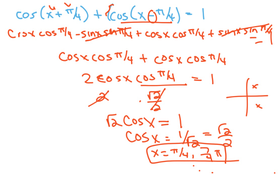 cos(x+π/4) + cos(x-π/4) = 1
cosx cosπ/4 - sinx sinπ/4 + cosx cosπ/4 + sinx sinπ/4 = 1
cosx cosπ/4 + cosx cosπ/4
2 cosx cosπ/4 = 1
2 · √2/2
√2 cosx = 1
cosx = 1/√2 = √2/2
x = π/4, 7/4 π